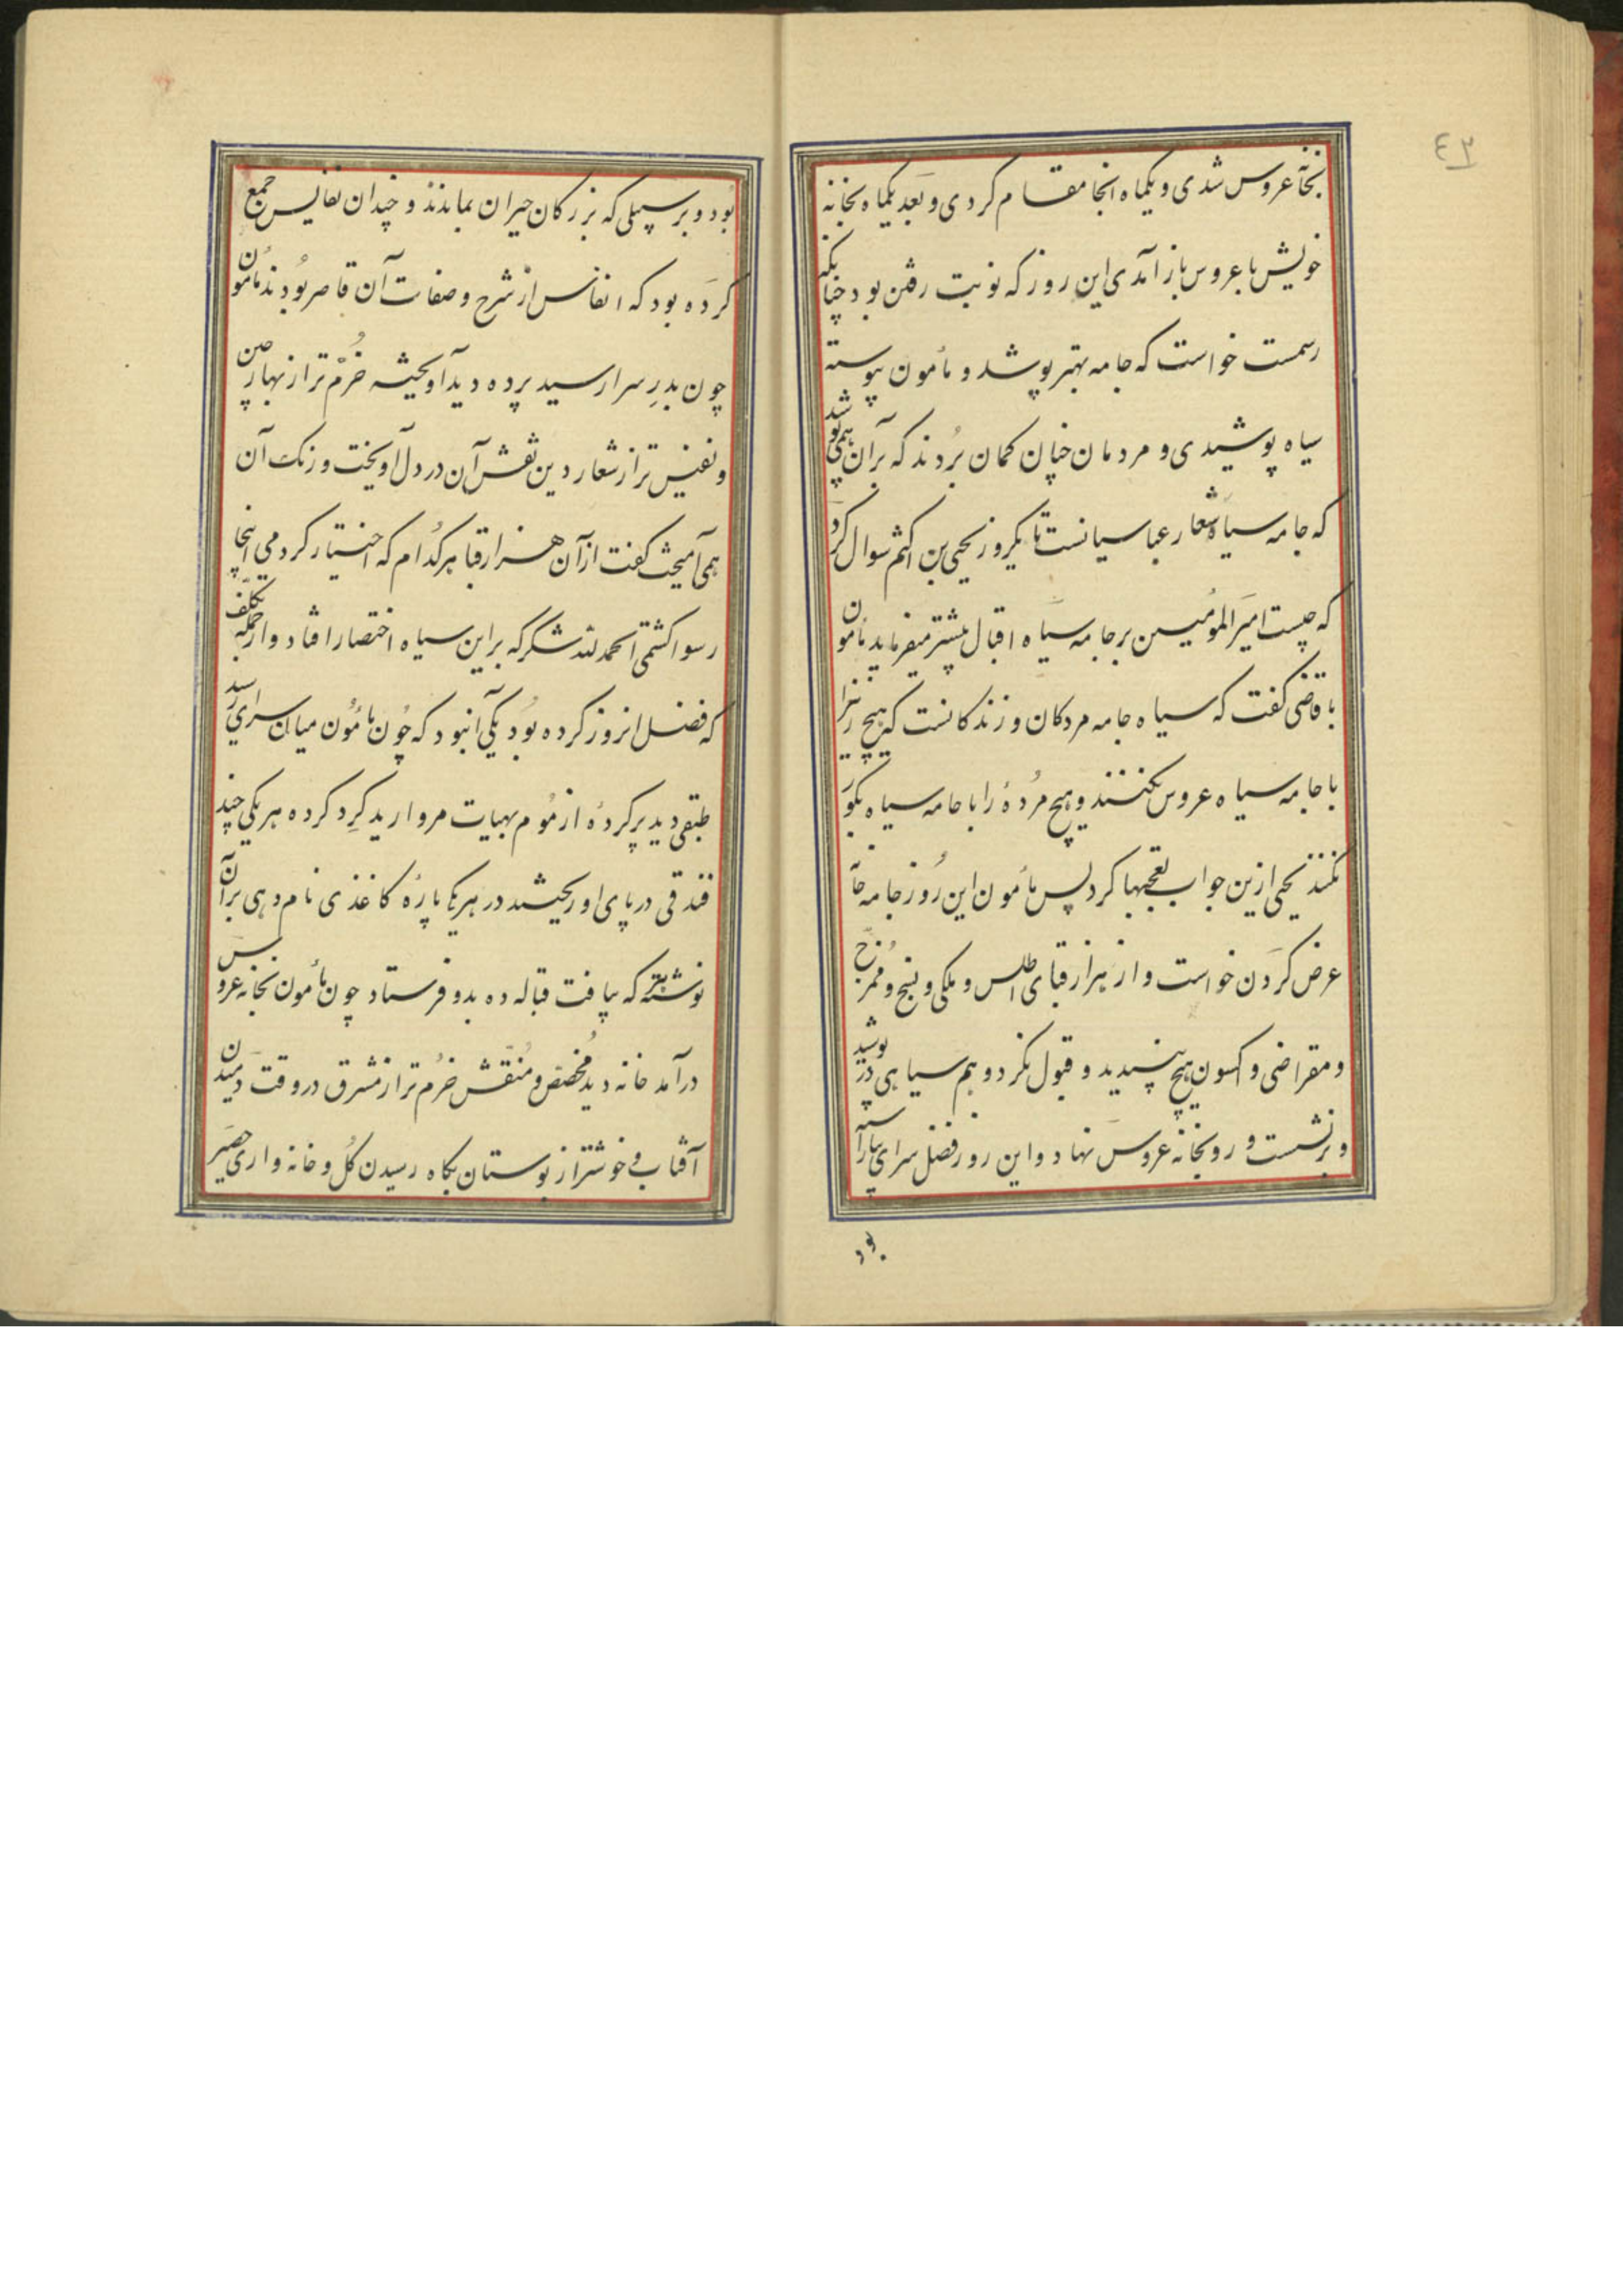 ٤٣
بخانه عروس شدی و یکماه انجا مقام کردی و بعد یکماه بخانه
خویش با عروس باز آمدی این روز که نوبت رفتن بود چنانکه
رسمست خواست که جامه بهتر پوشد و مأمون پیوسته
سیاه پوشیدی و مردمان چنان کمان بردند که برآن همی پوشد
که جامه سیاه شعار عباسیانست تا یکروز یحیی بن اکثم سوال کرد
که چیست امیر المومنین بر جامه سیاه اقبال بیشتر میفرماید مامون
با قاضی کفت که سیاه جامه مردکان و زندکانست که هیچ زنرا
با جامه سیاه عروس نکنند و هیچ مردۀ را با جامه سیاه بکور
نکنند یحیی ازین جواب تعجبها کرد پس مأمون این روز جامه خانه
عرض کردن خواست و از هزار قبای اطلس و ملکی و نسج و ممزج
و مقراضی و اکسون هیچ نپسندید و قبول نکرد و هم سیاهی در پوشید
و برنشست و رو بخانه عروس نهاد و این روز فضل سرای بیاراسته
بود
بود و بر سبیلی که بزرکان حیران بماندند و چندان نفایس جمع
کرده بود که انفاس از شرح و صفات آن قاصر بودند مامون
چون بدر سرا رسید پرده دید آویخته خرم تر از بهار چین
و نفیس تر از شعار دین نقش آن در دل آویخت و رنک آن
همی آمیخت کفت از آن هزار قبا هرکدام که اختیار کردمی اینجا
رسوا کشتمی الحمد لله شکر که براین سیاه اختصار افتاد و از جمله تکلف
که فضل انروز کرده بود یکی آنبود که چون مامون میان سرای رسید
طبقی دید پر کردۀ از موم بهیات مروارید کرد کرده هر یکی چند
فندقی در پای او ریختند در هریکی پارۀ کاغذی نام دهی بر آن
نوشته هر که بیافت قباله ده بدو فرستاد چون مأمون بخانه عروس
درآمد خانه دید مخصص و منقش خرم تر از مشرق در وقت دمیدن
آفتاب و خوشتر از بوستان بکاه رسیدن کل و خانه واری حصیر